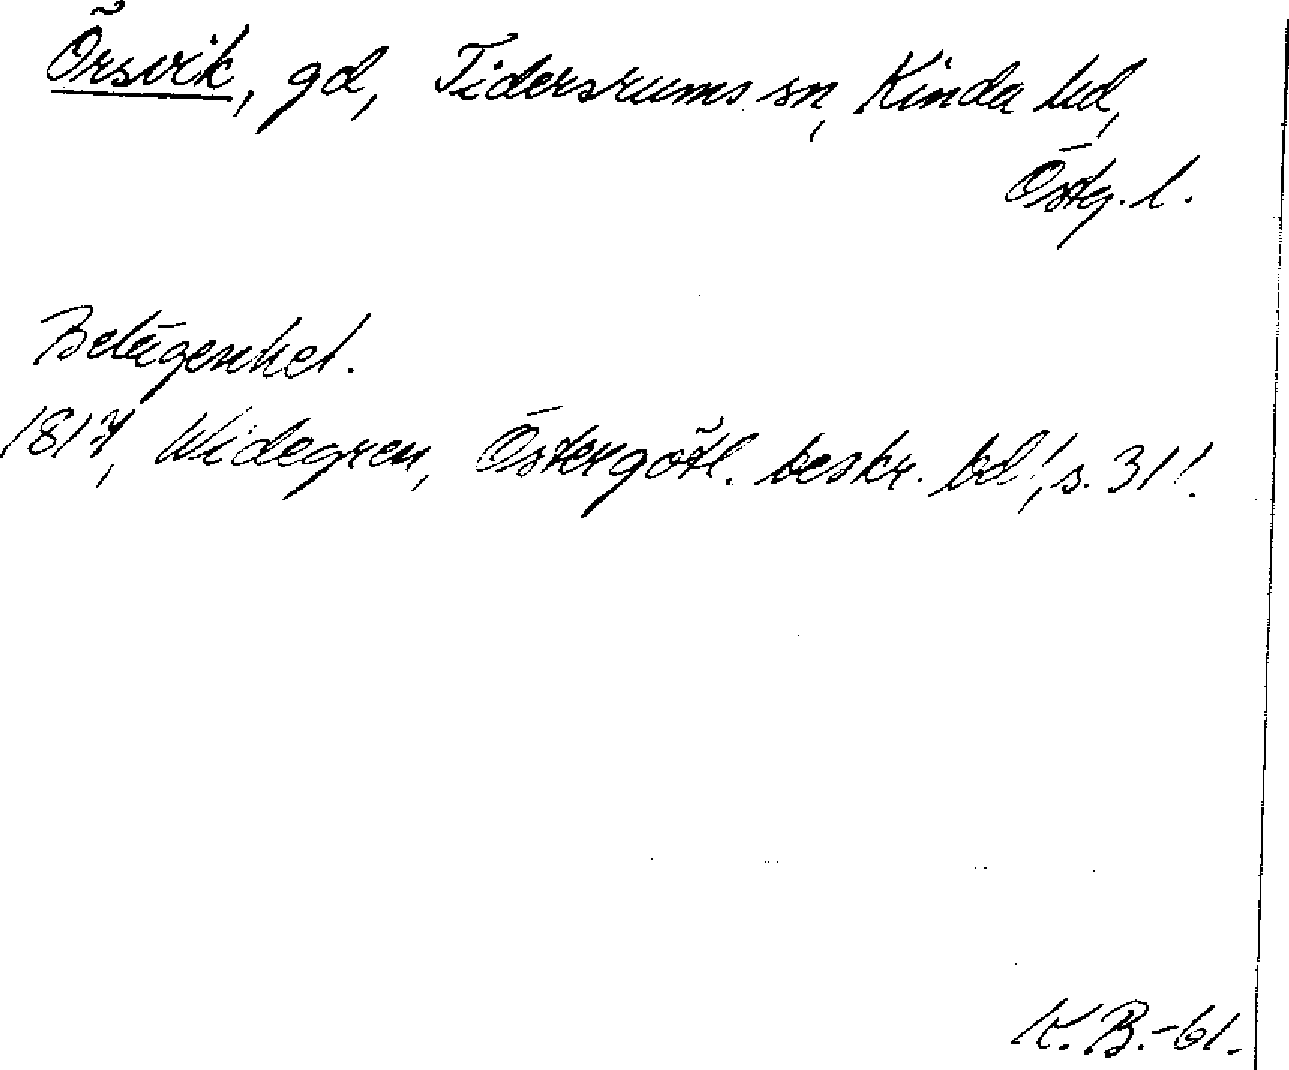 Örsvik, gd, Tidersrums sn, Kinda hd,
Östg. l.
Belägenhet.
1817, Widegren, Östergötl. beskr. bd 1, s. 311.
K. B. -61.